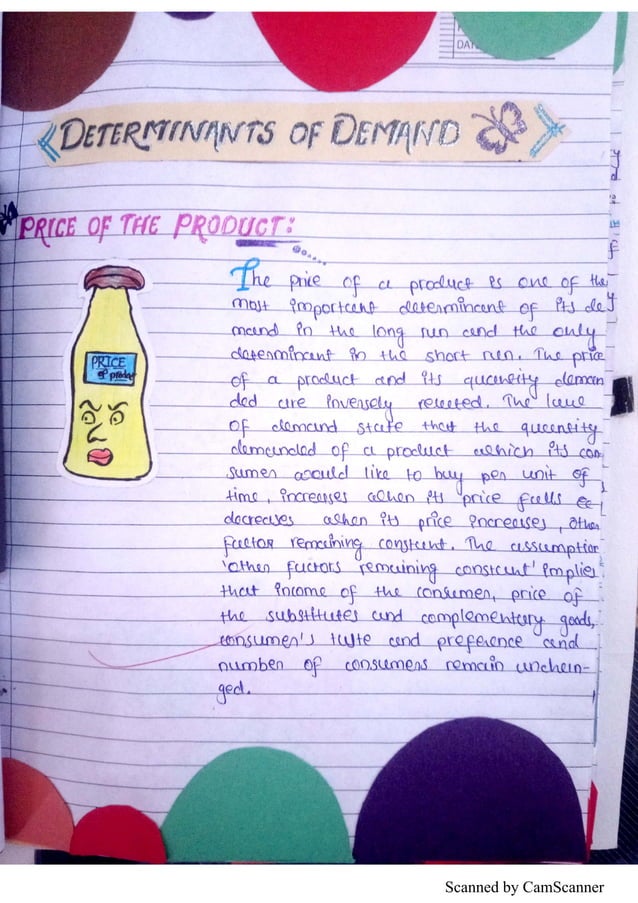 DAT
DETERMINANTS OF DEMAND
PRICE OF THE PRODUCT:
PRICE
of product
The price of a product is one of the
most important determinant of its de
mand in the long run and the only
determinant in the short run. The price
of a product and its quantity deman
ded are inversely related. The law
of demand state that the quantity
demanded of a product which its con
sumer would like to buy per unit of
time, increases when its price falls &
decreases when its price increases, other
factor remaining constant. The assumption
'other factors remaining constant' implies
that income of the consumer, price of
the substitutes and complementary goods,
consumer's taste and preference and
number of consumers remain unchan-
ged.
Scanned by CamScanner